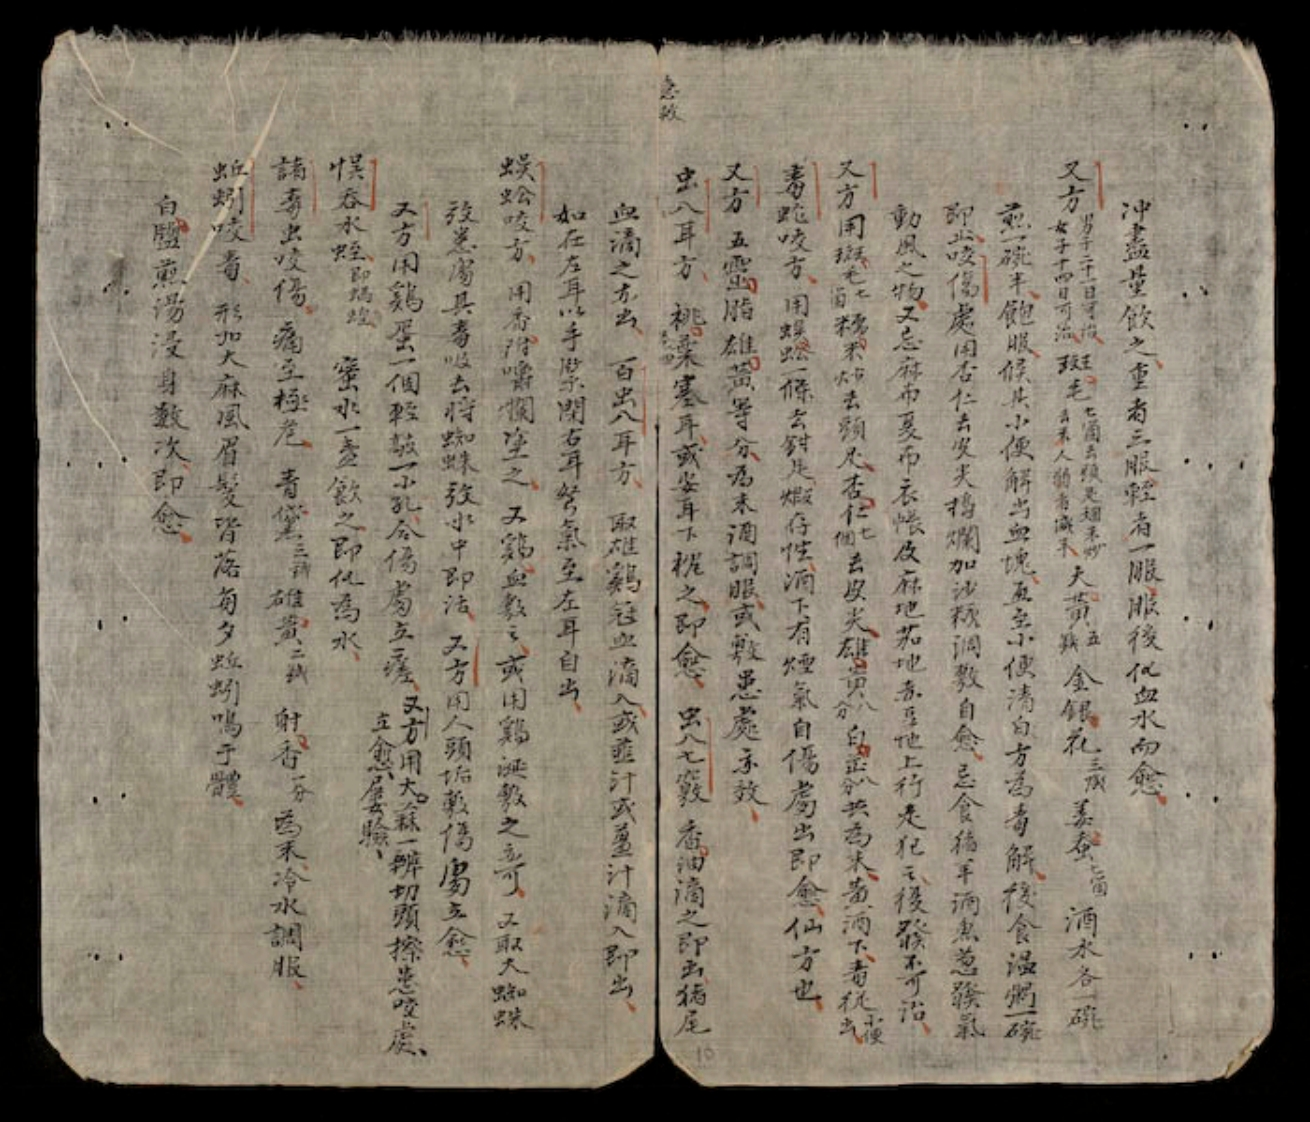 急救
冲盡量飲之重者三服輕者一服服後化血水而愈
又方 男子二十一日可治 女子十四日可治 斑毛 七箇去頭足翅米炒 去米人弱者減半 大黃 五錢 金銀花 三錢 姜蚕 七箇 酒水各一碗
煎一碗半飽服候其小便解出血塊直至小便清白方為毒解後食溫粥一碗
即止咬傷處用杏仁去皮尖搗爛加沙糖調敷自愈忌食猪羊酒魚葱發氣
動風之物又忌麻布夏布衣帳及麻地茄地赤豆地上行走犯之後發不可治
又方 用斑毛七箇糯米炒去頭足杏仁七個去皮尖雄黃八分白芷八分共為末黃酒下毒從小便出
毒蛇咬方 用蜈蚣一條去鉗足煅存性酒下有煙氣自傷處出即愈仙方也
又方 五靈脂雄黃等分為末酒調服或敷患處亦效
虫入耳方 桃葉塞耳或安耳下枕之即愈 虫入七竅 香油滴之即出猪尾
血滴之亦出 百虫入耳方 取雄鷄冠血滴入或韮汁或薑汁滴入即出
如在左耳以手緊閉右耳努氣至左耳自出
蜈蚣咬方 用香附嚼爛塗之 又鷄血敷之或用鷄涎敷之亦可 又取大蜘蛛
放患處其毒吸去將蜘蛛放水中即活 又方用人頭垢敷傷處立愈
又方用鷄蛋一個輕敲一小孔合傷處立瘥 又方用大蒜一瓣切頭擦患咬處 立愈屢驗
悞吞水蛭 即螞蝗 蜜水一盞飲之即化為水
諸毒虫咬傷 痛至極危 青黛 三錢 雄黃 二錢 射香 一分 為末冷水調服
蚯蚓咬毒 形如大麻風眉髮皆落每夕蚯蚓鳴于體
白鹽煎湯浸身數次即愈
10